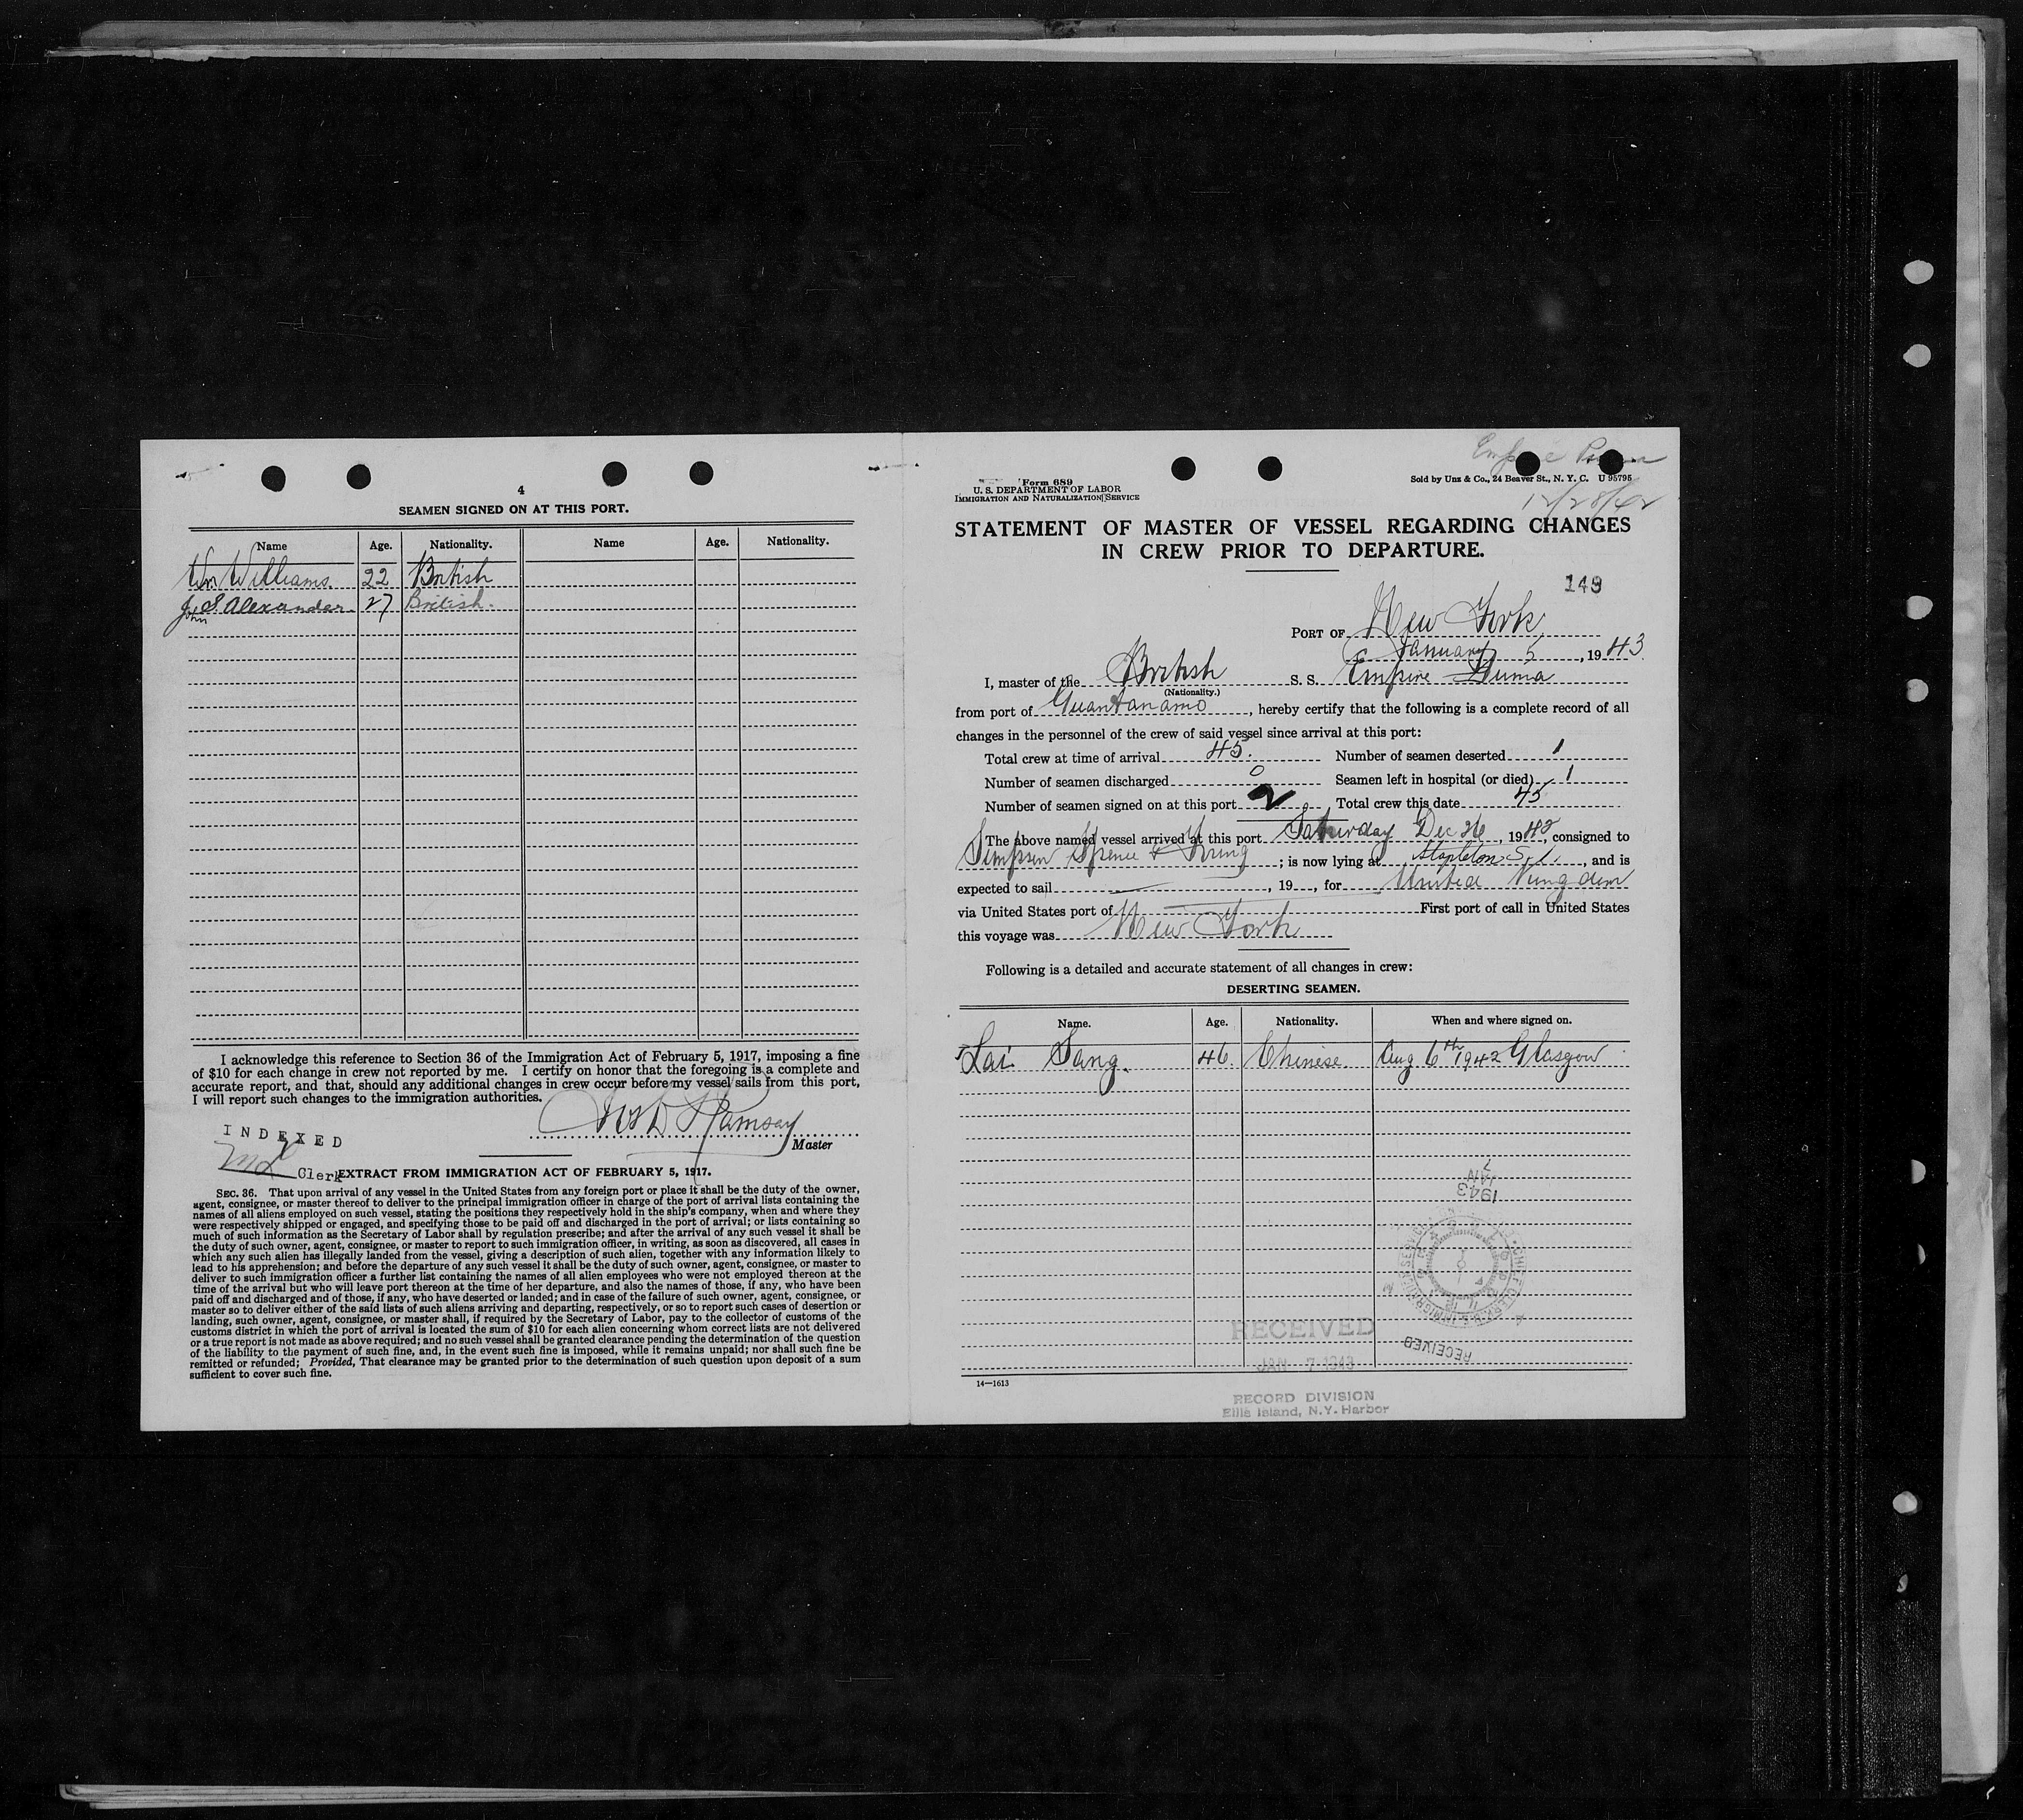 4
SEAMEN SIGNED ON AT THIS PORT.
Name Age. Nationality. Name Age. Nationality.
Wm Williams. 22 British
John S. Alexander. 27 British.
I acknowledge this reference to Section 36 of the Immigration Act of February 5, 1917, imposing a fine
of $10 for each change in crew not reported by me. I certify on honor that the foregoing is a complete and
accurate report, and that, should any additional changes in crew occur before my vessel sails from this port,
I will report such changes to the immigration authorities.
Ramsay
Master
INDEXED
Clerk
EXTRACT FROM IMMIGRATION ACT OF FEBRUARY 5, 1917.
SEC. 36. That upon arrival of any vessel in the United States from any foreign port or place it shall be the duty of the owner,
agent, consignee, or master thereof to deliver to the principal immigration officer in charge of the port of arrival lists containing the
names of all aliens employed on such vessel, stating the positions they respectively hold in the ship's company, when and where they
were respectively shipped or engaged, and specifying those to be paid off and discharged in the port of arrival; or lists containing so
much of such information as the Secretary of Labor shall by regulation prescribe; and after the arrival of any such vessel it shall be
the duty of such owner, agent, consignee, or master to report to such immigration officer, in writing, as soon as discovered, all cases in
which any such alien has illegally landed from the vessel, giving a description of such alien, together with any information likely to
lead to his apprehension; and before the departure of any such vessel it shall be the duty of such owner, agent, consignee, or master to
deliver to such immigration officer a further list containing the names of all alien employees who were not employed thereon at the
time of the arrival but who will leave port thereon at the time of her departure, and also the names of those, if any, who have been
paid off and discharged and of those, if any, who have deserted or landed; and in case of the failure of such owner, agent, consignee, or
master so to deliver either of the said lists of such aliens arriving and departing, respectively, or so to report such cases of desertion or
landing, such owner, agent, consignee, or master shall, if required by the Secretary of Labor, pay to the collector of customs of the
customs district in which the port of arrival is located the sum of $10 for each alien concerning whom correct lists are not delivered
or a true report is not made as above required; and no such vessel shall be granted clearance pending the determination of the question
of the liability to the payment of such fine, and, in the event such fine is imposed, while it remains unpaid; nor shall such fine be
remitted or refunded; Provided, That clearance may be granted prior to the determination of such question upon deposit of a sum
sufficient to cover such fine.
Form 689
U. S. DEPARTMENT OF LABOR
IMMIGRATION AND NATURALIZATION SERVICE
Sold by Unz & Co., 24 Beaver St., N. Y. C. U 95795
12/28/42
STATEMENT OF MASTER OF VESSEL REGARDING CHANGES
IN CREW PRIOR TO DEPARTURE.
149
PORT OF New York
January 5, 1943
I, master of the British S. S. Empire Puma
(Nationality.)
from port of Guantanamo, hereby certify that the following is a complete record of all
changes in the personnel of the crew of said vessel since arrival at this port:
Total crew at time of arrival 45. Number of seamen deserted 1
Number of seamen discharged 0 Seamen left in hospital (or died) 1
Number of seamen signed on at this port 2 Total crew this date 45
The above named vessel arrived at this port Saturday Dec 26, 1942, consigned to
Simpson Spence & Young; is now lying at Stapleton S.I., and is
expected to sail , 19 , for United Kingdom
via United States port of First port of call in United States
this voyage was New York
Following is a detailed and accurate statement of all changes in crew:
DESERTING SEAMEN.
Name. Age. Nationality. When and where signed on.
Lai Sang. 46. Chinese. Aug 6th 1942 Glasgow
1943
JAN
7
RECEIVED
RECEIVED
JAN 7 1943
14—1613
RECORD DIVISION
Ellis Island, N.Y. Harbor